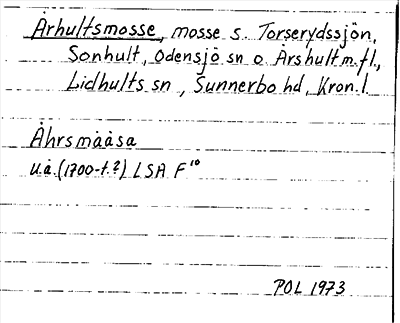 Århultsmosse, mosse s. Torserydssjön,
Sonhult, Odensjö sn o. Årshult m.fl.,
Lidhults sn, Sunnerbo hd, Kron.l.
Åhrsmååsa
u.å. (1700-t.?) LSA F¹⁰
POL 1973